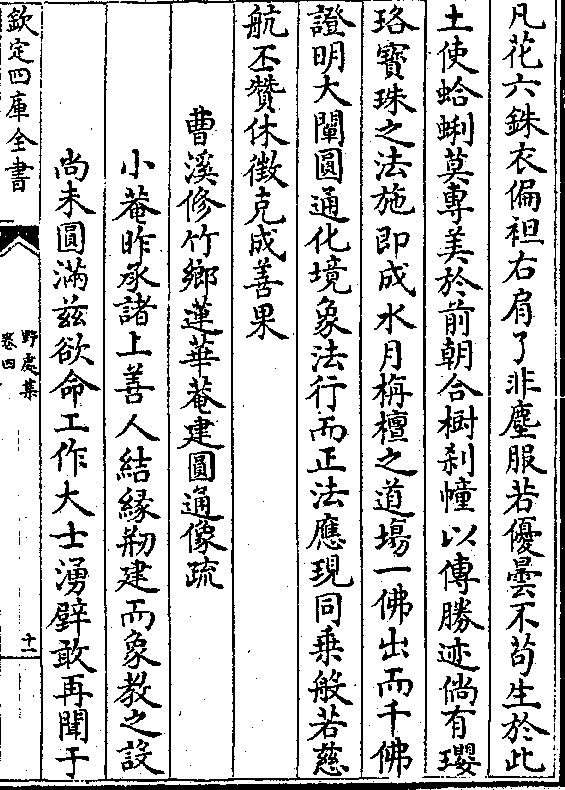 凡花六銖衣偏袒右肩了非塵服若優曇不苟生於此
土使蛤蜊莫專美於前朝合樹剎幢以傳勝迹倘有瓔
珞寶珠之法施即成水月栴檀之道場一佛出而千佛
證明大闡圓通化境象法行而正法應現同乗般若慈
航丕贊休徵克成善果
曹溪修竹鄉蓮華菴建圓通像疏
小菴昨承諸上善人結緣剏建而象教之設
尚未圓滿兹欲命工作大士湧壁敢再聞于
欽定四庫全書
野處集
卷四
十一